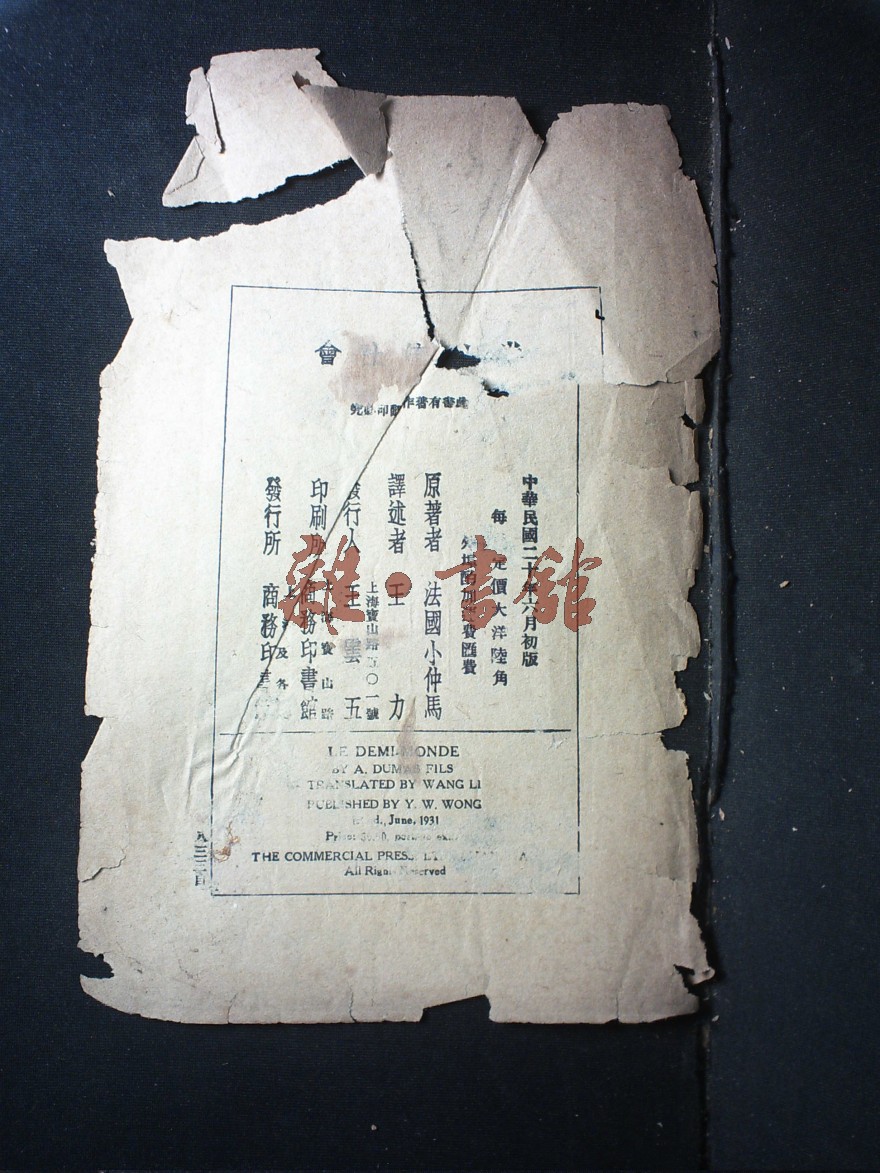 會
此書有著作 翻印必究
中華民國二十年六月初版
每 定價大洋陸角
外埠酌加運費匯費
原著者 法國小仲馬
譯述者 王力
發行人 王雲五
上海寶山路五〇一號
印刷所 商務印書館
上海寶山路
發行所 商務印書館
上海及各
LE DEMI-MONDE
BY A. DUMAS FILS
TRANSLATED BY WANG LI
PUBLISHED BY Y. W. WONG
June, 1931
THE COMMERCIAL PRESS
All Rights Reserved
雜·書館